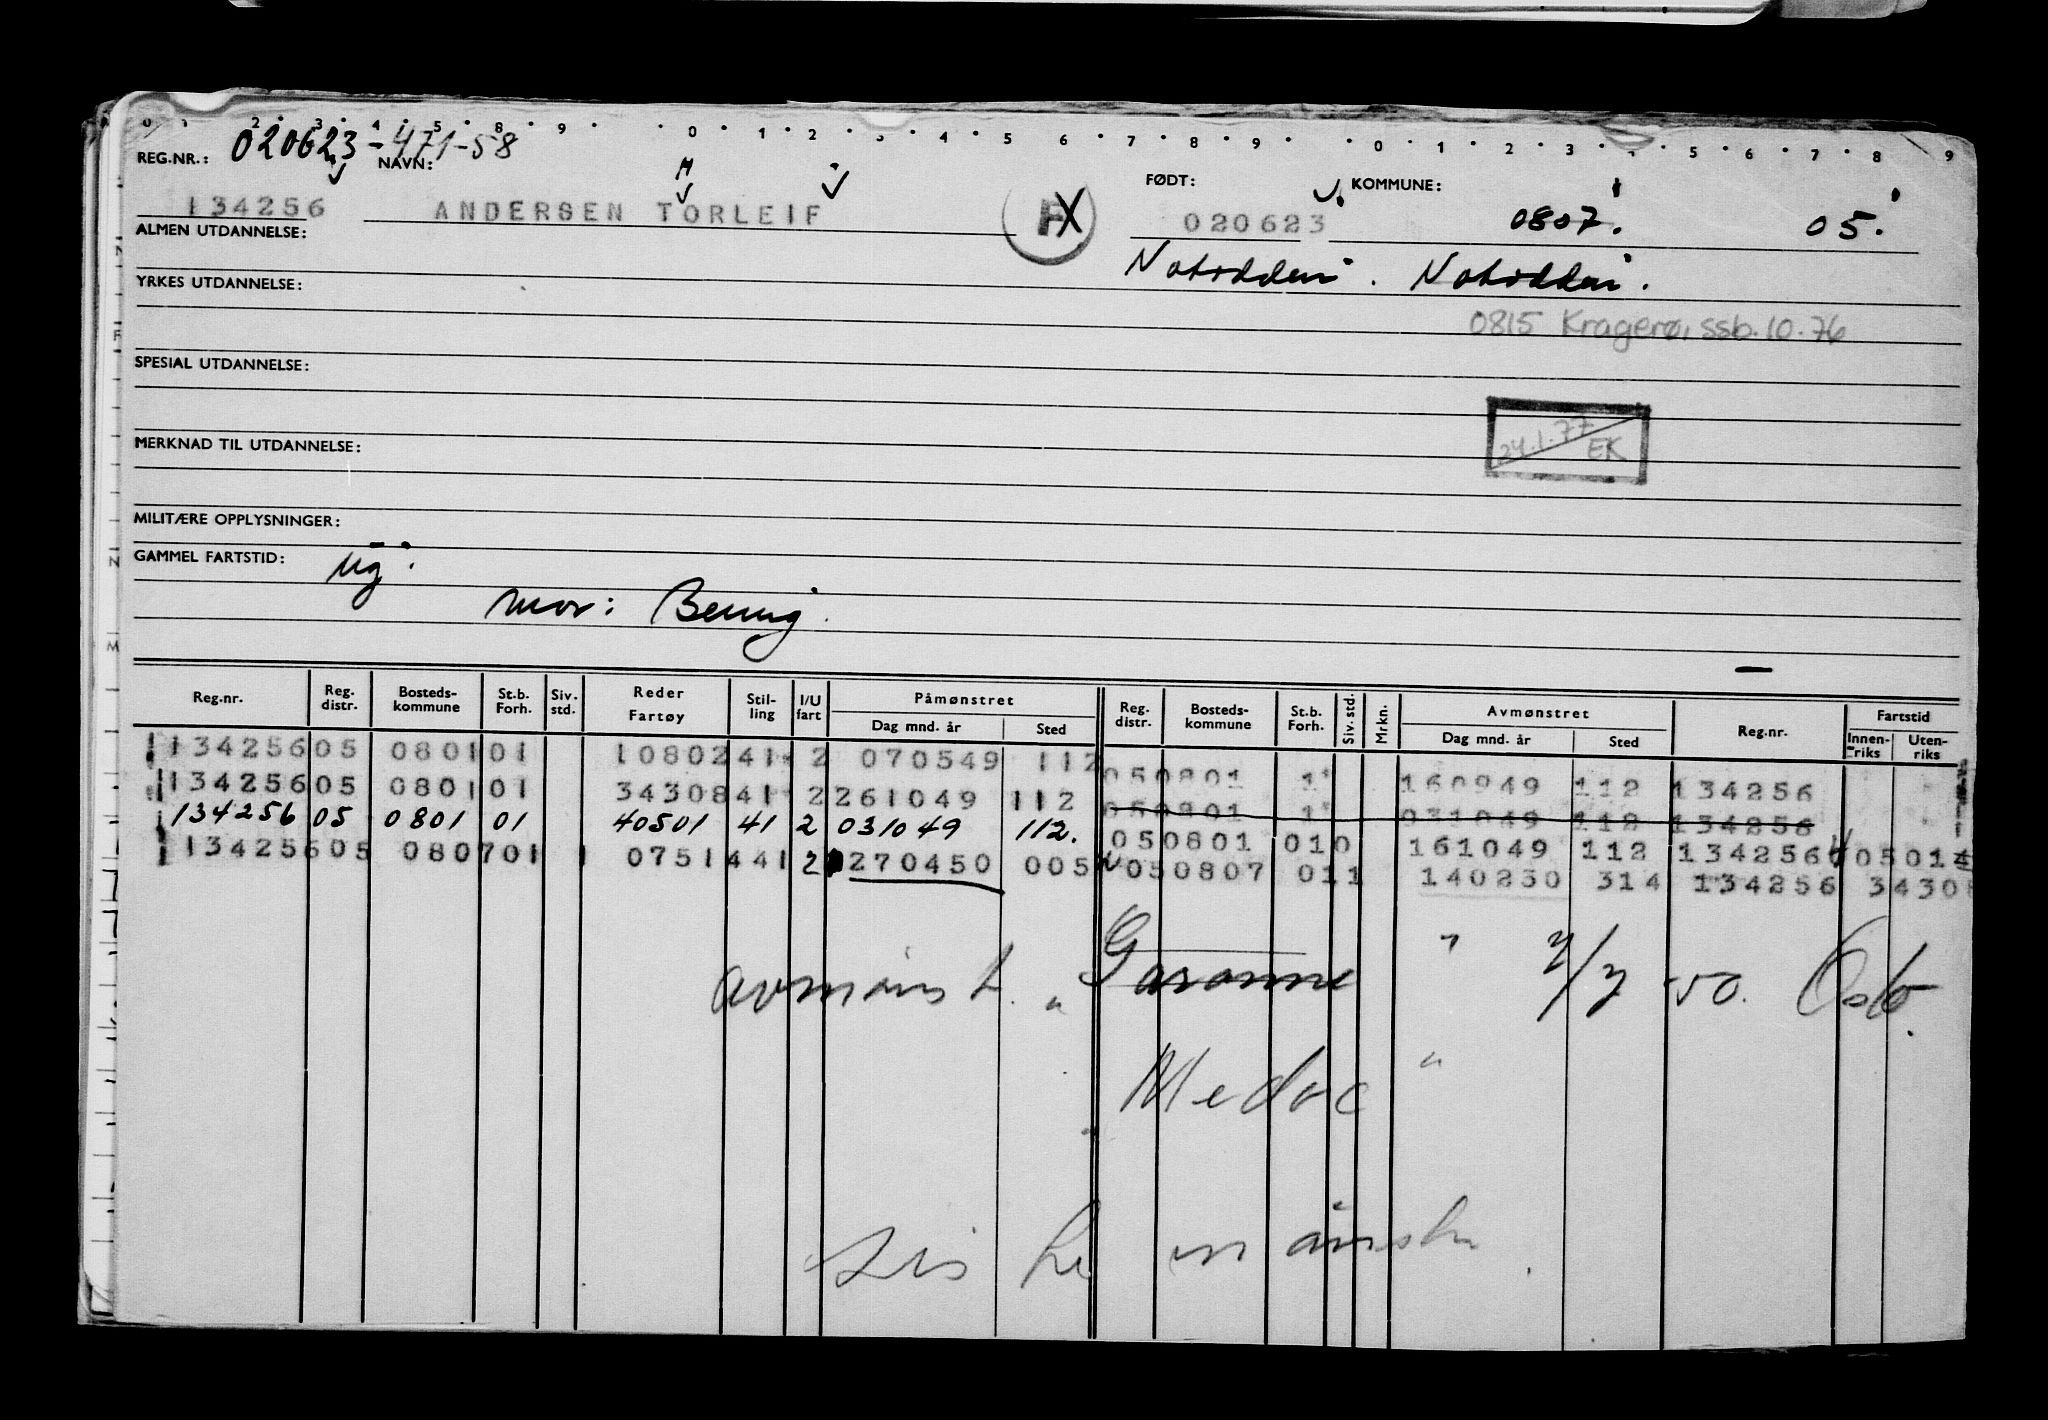 020623-471-58
REG.NR.: NAVN: FØDT: KOMMUNE:
134256 ANDERSEN TORLEIF FX 020623 0807. 05.
ALMEN UTDANNELSE:
Notodden. Notodden.
YRKES UTDANNELSE:
0815 Kragerø, ssb. 10.76
SPESIAL UTDANNELSE:
24.1.77 EK
MERKNAD TIL UTDANNELSE:
MILITÆRE OPPLYSNINGER:
GAMMEL FARTSTID: Ug.
mor: Benny.
Reg.nr. Reg. distr. Bosteds-kommune St.b. Forh. Siv. std. Reder Fartøy Stil-ling I/U fart Påmønstret Dag mnd. år Sted Reg. distr. Bosteds-kommune St.b. Forh. Siv. std. Mrkn. Avmønstret Dag mnd. år Sted Reg.nr. Fartstid Innen-riks Uten-riks
134256 05 0801 01 10802 41 2 070549 112
050801 1 160949 112 134256
134256 05 0801 01 34308 41 2 261049 112
050801 1 031049 112 134256
134256 05 0801 01 40501 41 2 031049 112.
050801 010 161049 112 134256 05014
134256 05 0807 01 1 07514 41 2 270450 005
050807 011 140250 314 134256 3430
avmønst. "Garonne" 4/7 50. Oslo.
"Medoc"